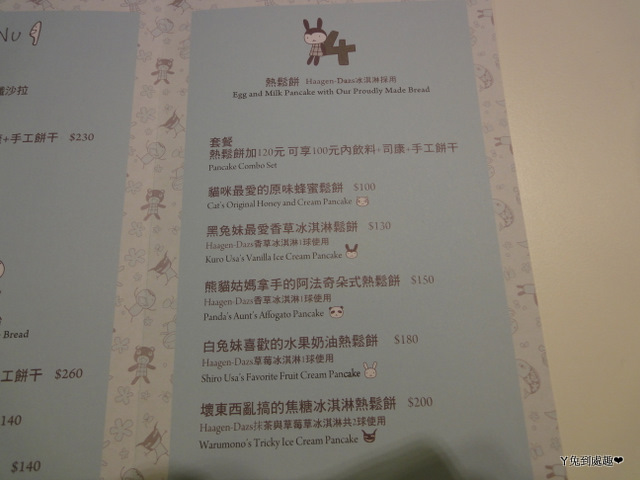 Nu
沙拉
+手工餅干 $230
Bread
工餅干 $260
140
$140
4
熱鬆餅 Haagen-Dazs冰淇淋採用
Egg and Milk Pancake with Our Proudly Made Bread
套餐
熱鬆餅加120元 可享100元內飲料+司康+手工餅干
Pancake Combo Set
貓咪最愛的原味蜂蜜鬆餅 $100
Cat's Original Honey and Cream Pancake
黑兔妹最愛香草冰淇淋鬆餅 $130
Haagen-Dazs香草冰淇淋1球使用
Kuro Usa's Vanilla Ice Cream Pancake
熊貓姑媽拿手的阿法奇朵式熱鬆餅 $150
Haagen-Dazs香草冰淇淋1球使用
Panda's Aunt's Affogato Pancake
白兔妹喜歡的水果奶油熱鬆餅 $180
Haagen-Dazs草莓冰淇淋1球使用
Shiro Usa's Favorite Fruit Cream Pancake
壞東西亂搞的焦糖冰淇淋熱鬆餅 $200
Haagen-Dazs抹茶與草莓草冰淇淋共2球使用
Warumono's Tricky Ice Cream Pancake
Y兔到處趣❤